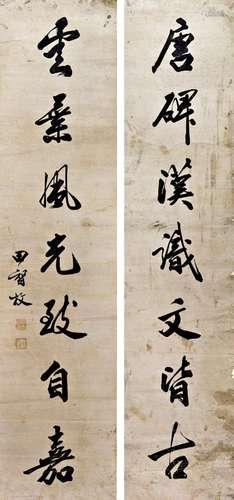 唐碑漢識文皆古
雲葉風光致自嘉
田智枚